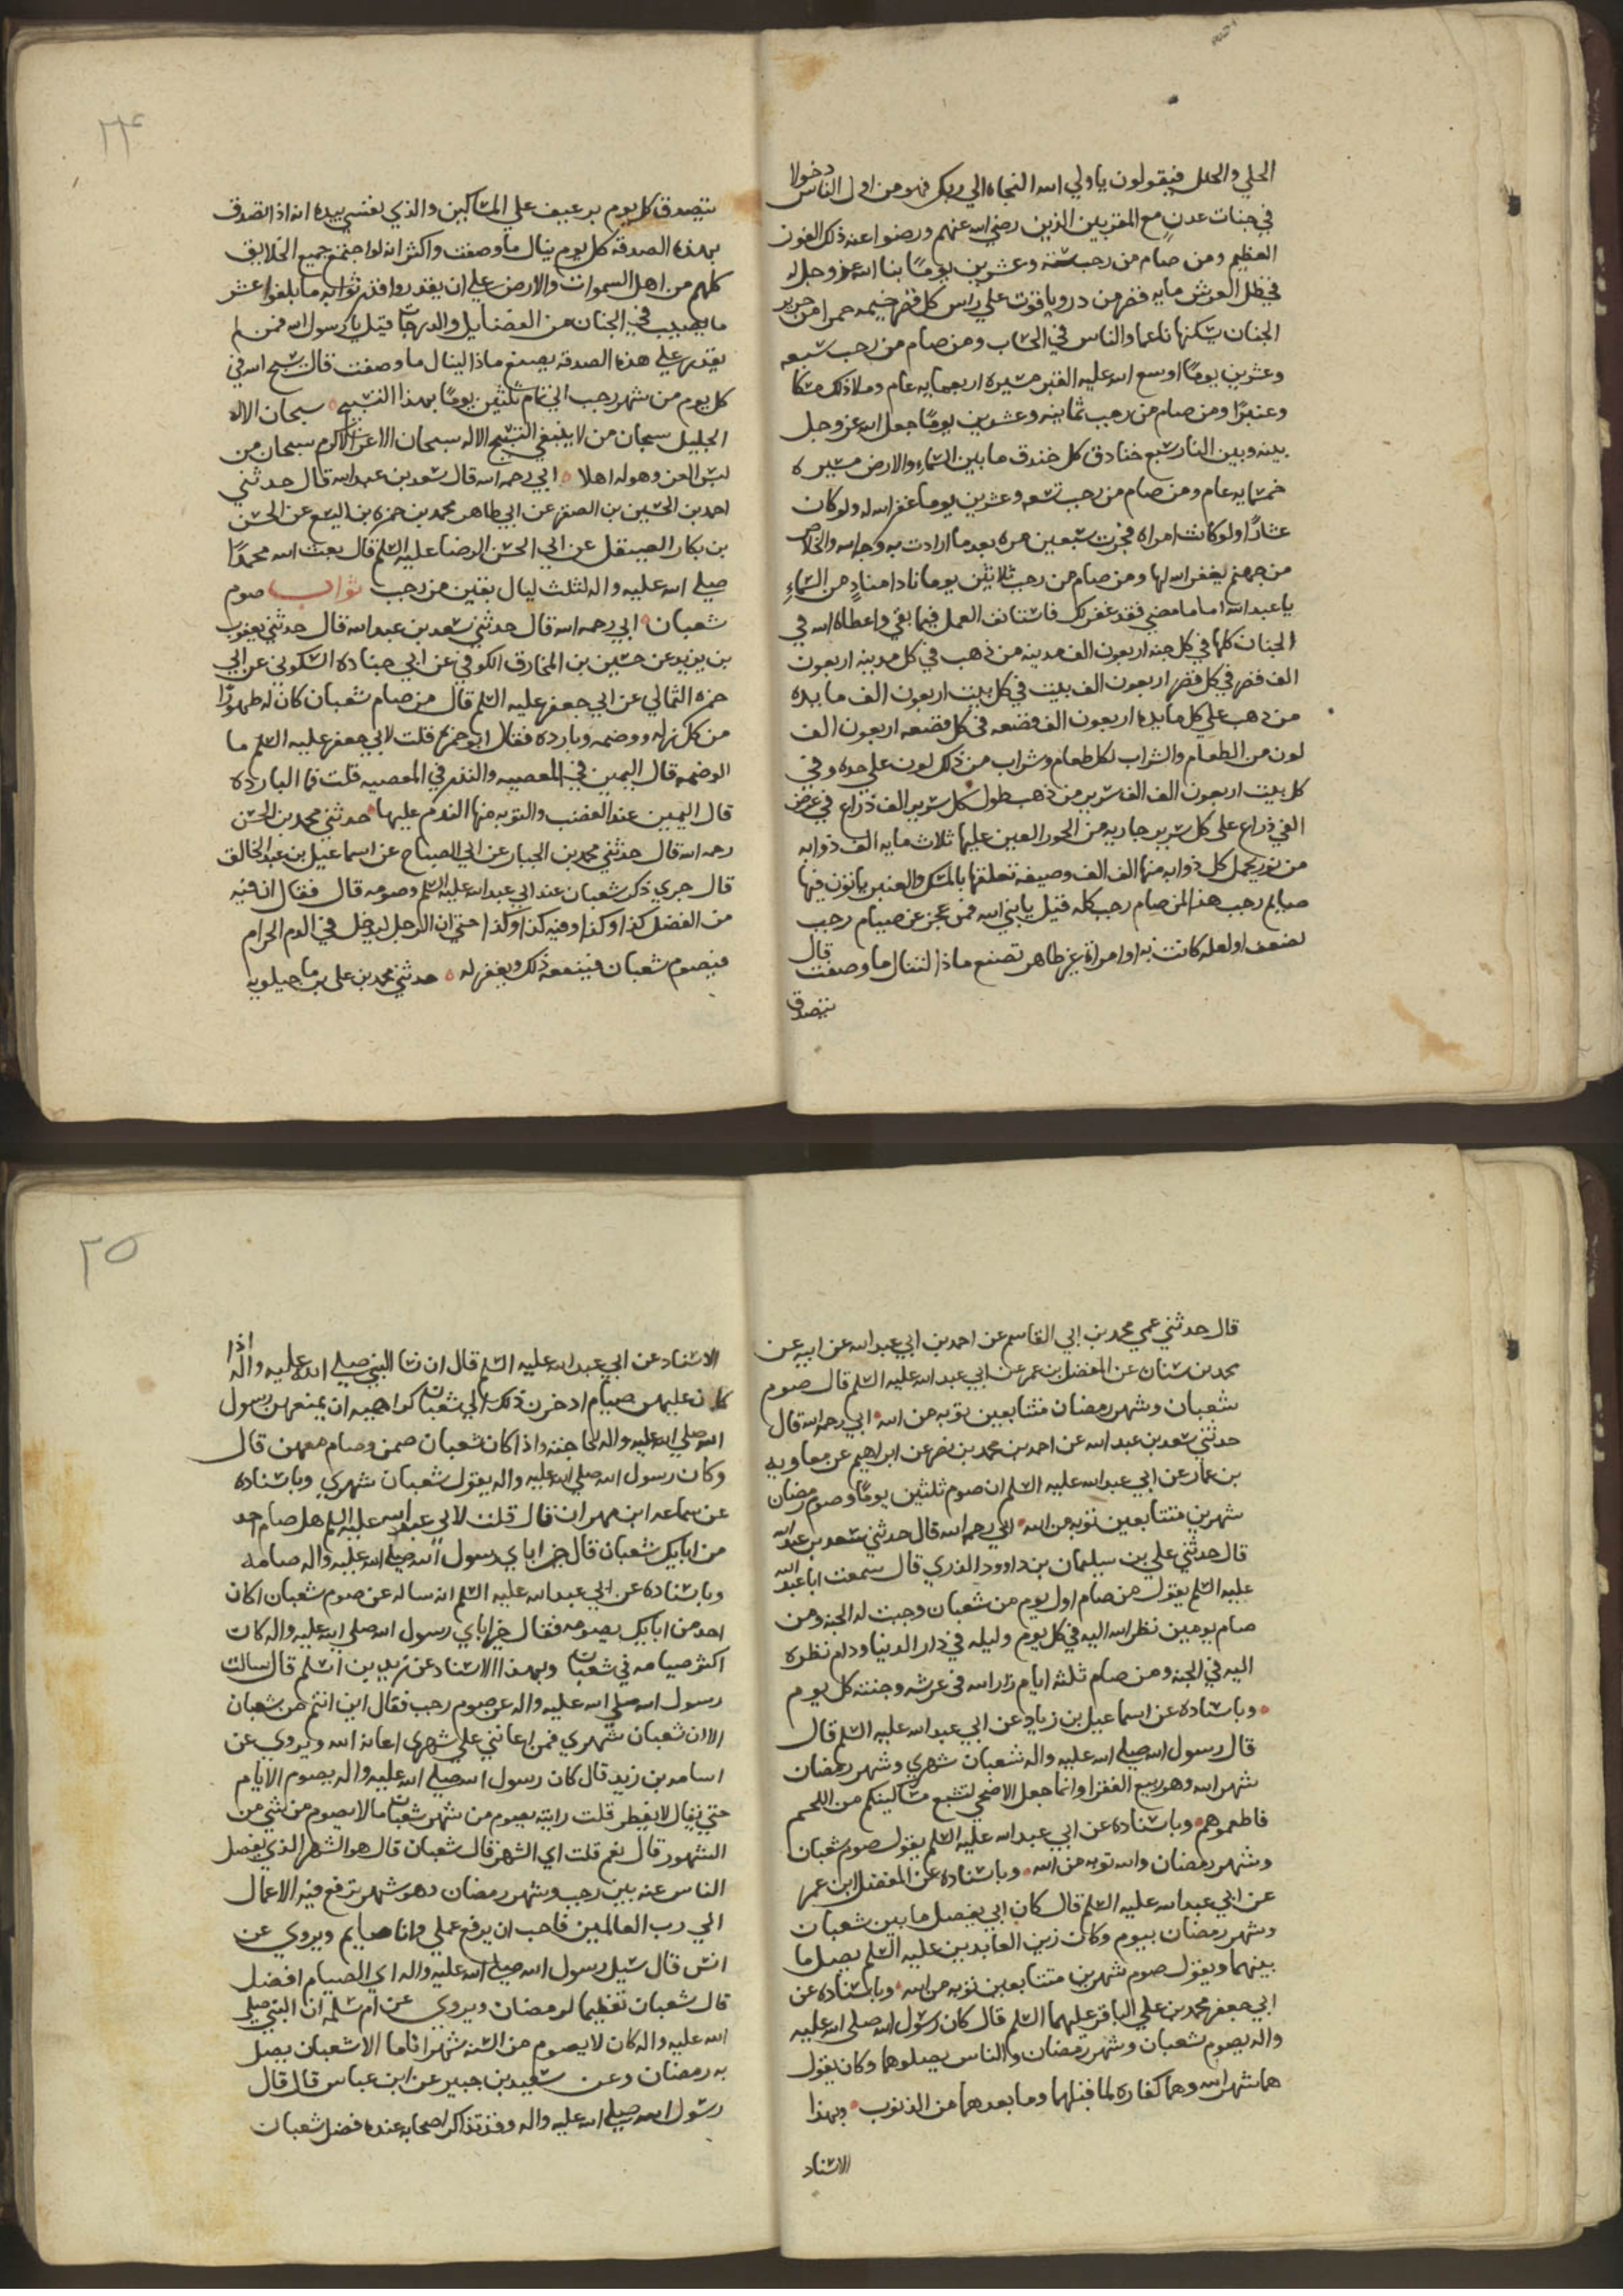 الحلي والحلل فيقولون يا ولي الله النجاه الي ربك فهو من اول الناس دخولا
في جنات عدن مع المقربين الذين رضي الله عنهم ورضوا عنه ذلك الفوز
العظيم ومن صام من رجب ستة وعشرين يومًا بنا الله عز وجل له
في ظل العرش مايه قصر من در وياقوت علي راس كل قصر خيمه حمرا من حرير
الجنان يسكنها ناعما والناس في الحساب ومن صام من رجب سبعه
وعشرين يومًا اوسع الله عليه القبر مسيره اربعمايه عام وملا ذلك مسكا
وعنبرًا ومن صام من رجب ثمانيه وعشرين يومًا جعل الله عز وجل
بينه وبين النار سبع خنادق كل خندق ما بين السماء والارض مسيره
خمسمايه عام ومن صام من رجب تسعه وعشرين يوما غفر الله له ولو كان
عشارًا ولو كانت امراه فجرت سبعين مره بعد ما ارادت به وجه الله والخلاص
من جهنم يغفر الله لها ومن صام من رجب ثلاثين يوما نادا منادٍ من السماء
يا عبد الله اما ما مضي فقد غفر لك فاستانف العمل فيما بقي واعطاه الله في
الجنان كلها في كل جنه اربعون الف مدينه من ذهب في كل مدينه اربعون
الف قصر في كل قصر اربعون الف بيت في كل بيت اربعون الف مايده
من ذهب علي كل مايده اربعون الف قصعه في كل قصعه اربعون الف
لون من الطعام والشراب لكل طعام وشراب من ذلك لون علي حده وفي
كل بيت اربعون الف الف سرير من ذهب طول كل سرير الف ذراع في عرض
الفي ذراع علي كل سرير جاريه من الحور العين عليها ثلاث مايه الف ذوابه
من نور يحمل كل ذوابه منها الف الف وصيفه تغلفها بالمسك والعنبر ياتون فيها
صايم رجب هذا لمن صام رجب كله قيل يا نبي الله فمن عجز عن صيام رجب
لضعف او لعله كانت به او امراة غير طاهر تصنع ماذا لتنال ما وصفت قال
يتصدق
٢٤
يتصدق كل يوم برغيف علي المساكين والذي نفسي بيده انه اذا تصدق
بهذه الصدقه كل يوم ينال ما وصفت واكثر انه لو اجتمع جميع الخلايق
كلهم من اهل السموات والارض علي ان يقدروا قدر ثوابه ما بلغوا عشر
ما يصيب في الجنان من الفضايل والدرجات قيل يا رسول الله فمن لم
يقدر علي هذه الصدقه يصنع ماذا لينال ما وصفت قال يسبح الله في
كل يوم من شهر رجب الي تمام ثلثين يومًا بهذا التسبيح سبحان الاله
الجليل سبحان من لا ينبغي التسبيح الا له سبحان الاعز الاكرم سبحان من
لبس العز وهو له اهلا ابي رحمه الله قال سعد بن عبد الله قال حدثني
احمد بن الحسين بن الصقر عن ابي طاهر محمد بن حمزه بن اليسع عن الحسن
بن بكار الصيقل عن ابي الحسن الرضا عليه السلم قال بعث الله محمدًا
صلي الله عليه واله لثلث ليال بقين من رجب ثواب صوم
شعبان ابي رحمه الله قال حدثني سعد بن عبد الله قال حدثني يعقوب
بن يزيد عن حسين بن المخارق الكوفي عن ابي جناده السكوني عن ابي
حمزه الثمالي عن ابي جعفر عليه السلم قال من صام شعبان كان له طهورًا
من كل زله ووصمه وبارده فقال ابو حمزه قلت لابي جعفر عليه السلم ما
الوصمه قال اليمين في المعصيه والنذر في المعصيه قلت فما البارده
قال اليمين عند الغضب والتوبه منها الندم عليها حدثني محمد بن الحسن
رحمه الله قال حدثني محمد بن الجبار عن ابي الصباح عن اسماعيل بن عبد الخالق
قال جري ذكر شعبان عند ابي عبد الله عليه السلم وصومه قال فقال ان فيه
من الفضل كذا وكذا وفيه كذا وكذا حتي ان الرجل ليدخل في الدم الحرام
فيصوم شعبان فينفعه ذلك ويغفر له حدثني محمد بن علي بن ماجيلويه
قال حدثني عمي محمد بن ابي القاسم عن احمد بن ابي عبد الله عن ابيه عن
محمد بن سنان عن المفضل بن عمر عن ابي عبد الله عليه السلم قال صوم
شعبان وشهر رمضان متتابعين توبه من الله ابي رحمه الله قال
حدثني سعد بن عبد الله عن احمد بن محمد بن نصر عن ابراهيم عن معاويه
بن عمار عن ابي عبد الله عليه السلم ان صوم ثلثين يومًا وصوم رمضان
شهرين متتابعين توبه من الله ابي رحمه الله قال حدثني سعد بن عبد الله
قال حدثني علي بن سليمان بن داوود الذري قال سمعت ابا عبد الله
عليه السلم يقول من صام اول يوم من شعبان وجبت له الجنه ومن
صام يومين نظر الله اليه في كل يوم وليله في دار الدنيا ودام نظره
اليه في الجنه ومن صام ثلثه ايام زار الله في عرشه وجنته كل يوم
وباسناده عن اسماعيل بن زياد عن ابي عبد الله عليه السلم قال
قال رسول الله صلي الله عليه واله شعبان شهري وشهر رمضان
شهر الله وهو ربيع الفقرا وانما جعل الاضحي لتشبع مساكينكم من اللحم
فاطعموهم وباسناده عن ابي عبد الله عليه السلم يقول صوم شعبان
وشهر رمضان والله توبه من الله وباسناده عن المفضل ابن عمر
عن ابي عبد الله عليه السلم قال كان ابي يفصل ما بين شعبان
وشهر رمضان بيوم وكان زين العابدين عليه السلم يصل ما
بينهما ويقول صوم شهرين متتابعين توبه من الله وباسناده عن
ابي جعفر محمد بن علي الباقر عليهما السلم قال كان رسول الله صلي الله عليه
واله يصوم شعبان وشهر رمضان والناس يصلوهما وكان يقول
هما شهر الله وهما كفاره لما قبلهما وما بعدهما من الذنوب وبهذا
الاسناد
٢٥
الاسناد عن ابي عبد الله عليه السلم قال ان نسا النبي صلي الله عليه واله اذا
كان عليهن صيام ادخرن ذلك الي شعبان كراهيه ان يمنعن رسول
الله صلي الله عليه واله حاجته واذا كان شعبان صمن وصام معهن قال
وكان رسول الله صلي الله عليه واله يقول شعبان شهري وباسناده
عن سماعه ابن مهران قال قلت لابي عبد الله عليه السلم هل صام احد
من ابايك شعبان قال خير اباي رسول الله صلي الله عليه واله صامه
وباسناده عن ابي عبد الله عليه السلم انه ساله عن صوم شعبان اكان
احد من ابايك يصومه فقال خير اباي رسول الله صلي الله عليه واله كان
اكثر صيامه في شعبان وبهذا الاسناد عن زيد بن اسلم قال سالت
رسول الله صلي الله عليه واله عن صوم رجب فقال اين انتم من شعبان
الا ان شعبان شهري فمن اعانني علي شهري اعانه الله ويروي عن
اسامه بن زيد قال كان رسول الله صلي الله عليه واله يصوم الايام
حتي يقال لا يفطر قلت رايته يصوم من شهر شعبان ما لا يصوم من شي من
الشهور قال نعم قلت اي الشهر قال شعبان قال هو الشهر الذي يغفل
الناس عنه بين رجب وشهر رمضان وهو شهر ترفع فيه الاعمال
الي رب العالمين فاحب ان يرفع عملي وانا صايم ويروي عن
انس قال سيل رسول الله صلي الله عليه واله اي الصيام افضل
قال شعبان تعظيما لرمضان ويروي عن ام سلمه ان النبي صلي
الله عليه واله كان لا يصوم من السنه شهرا تاما الا شعبان يصل
به رمضان وعن سعيد بن جبير عن ابن عباس قال قال
رسول الله صلي الله عليه واله وقد تذاكر اصحابه عنده فضل شعبان